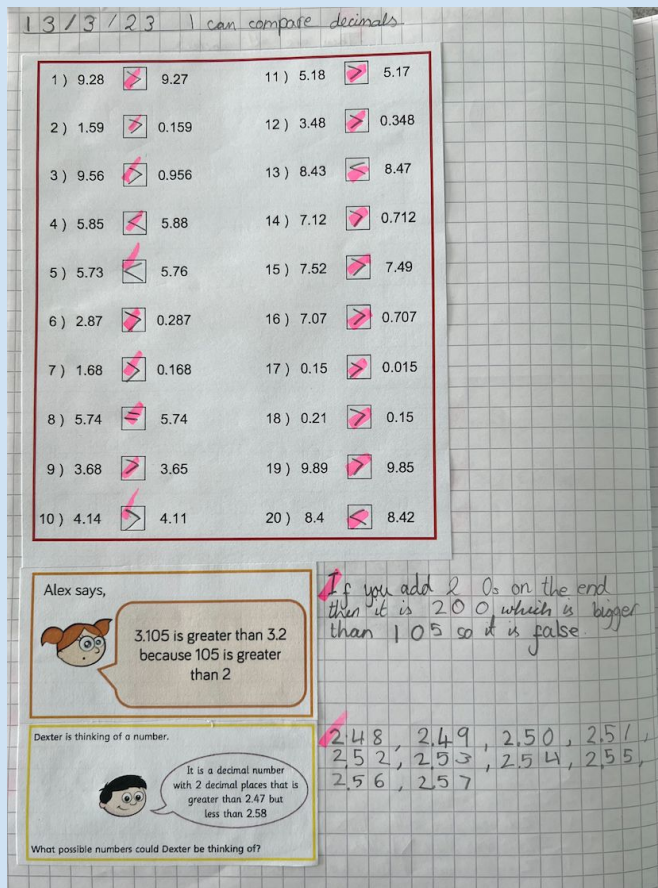 13/3/23 I can compare decimals.
1) 9.28 > 9.27
2) 1.59 > 0.159
3) 9.56 > 0.956
4) 5.85 < 5.88
5) 5.73 < 5.76
6) 2.87 > 0.287
7) 1.68 > 0.168
8) 5.74 = 5.74
9) 3.68 > 3.65
10) 4.14 > 4.11
11) 5.18 > 5.17
12) 3.48 > 0.348
13) 8.43 < 8.47
14) 7.12 > 0.712
15) 7.52 > 7.49
16) 7.07 > 0.707
17) 0.15 > 0.015
18) 0.21 > 0.15
19) 9.89 > 9.85
20) 8.4 < 8.42
Alex says,
3.105 is greater than 3.2
because 105 is greater
than 2
If you add 2 0s on the end
then it is 200 which is bigger
than 105 so it is false.
Dexter is thinking of a number.
It is a decimal number
with 2 decimal places that is
greater than 2.47 but
less than 2.58
What possible numbers could Dexter be thinking of?
2.48, 2.49, 2.50, 2.51,
2.52, 2.53, 2.54, 2.55,
2.56, 2.57